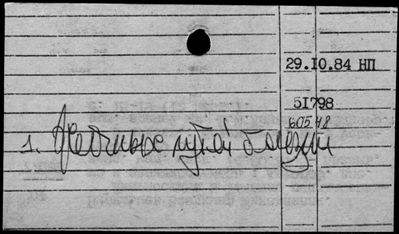 29.10.84 НП
51798
60548
1. Желчных путей болезни